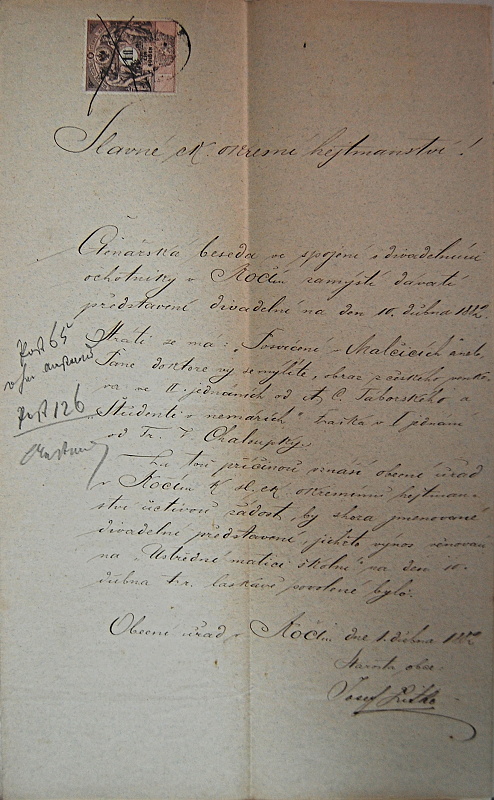 Slavné ck. okresní hejtmanství!
Čtenářská beseda ve spojení s divadelními
ochotníky v Kočín zamýslí davati
představení divadelní na den 10. dubna
Hráti se má: „Posvícení v Malčicích" aneb
Pane doktore vy se mýlíte, obraz z českého
ve II. jednáních od A. C. Taborského a
„Studenti v nesnázích" fraška v 1 jednání
od Fr. F. Chalupky.
Za tou příčinou vznáší obecní úřad
v Kočín K sl. ck. okresnímu hejtman-
ství uctivou žádost, by shora jmenované
divadelní představení, jichžto výnos věnován
na „Ustřední matici školní" na den 10.
dubna t. r. laskavě povolené bylo.
Obecní úřad v Kočín dne 1. dubna
Starosta obce:
Josef
Post 65
Post 126